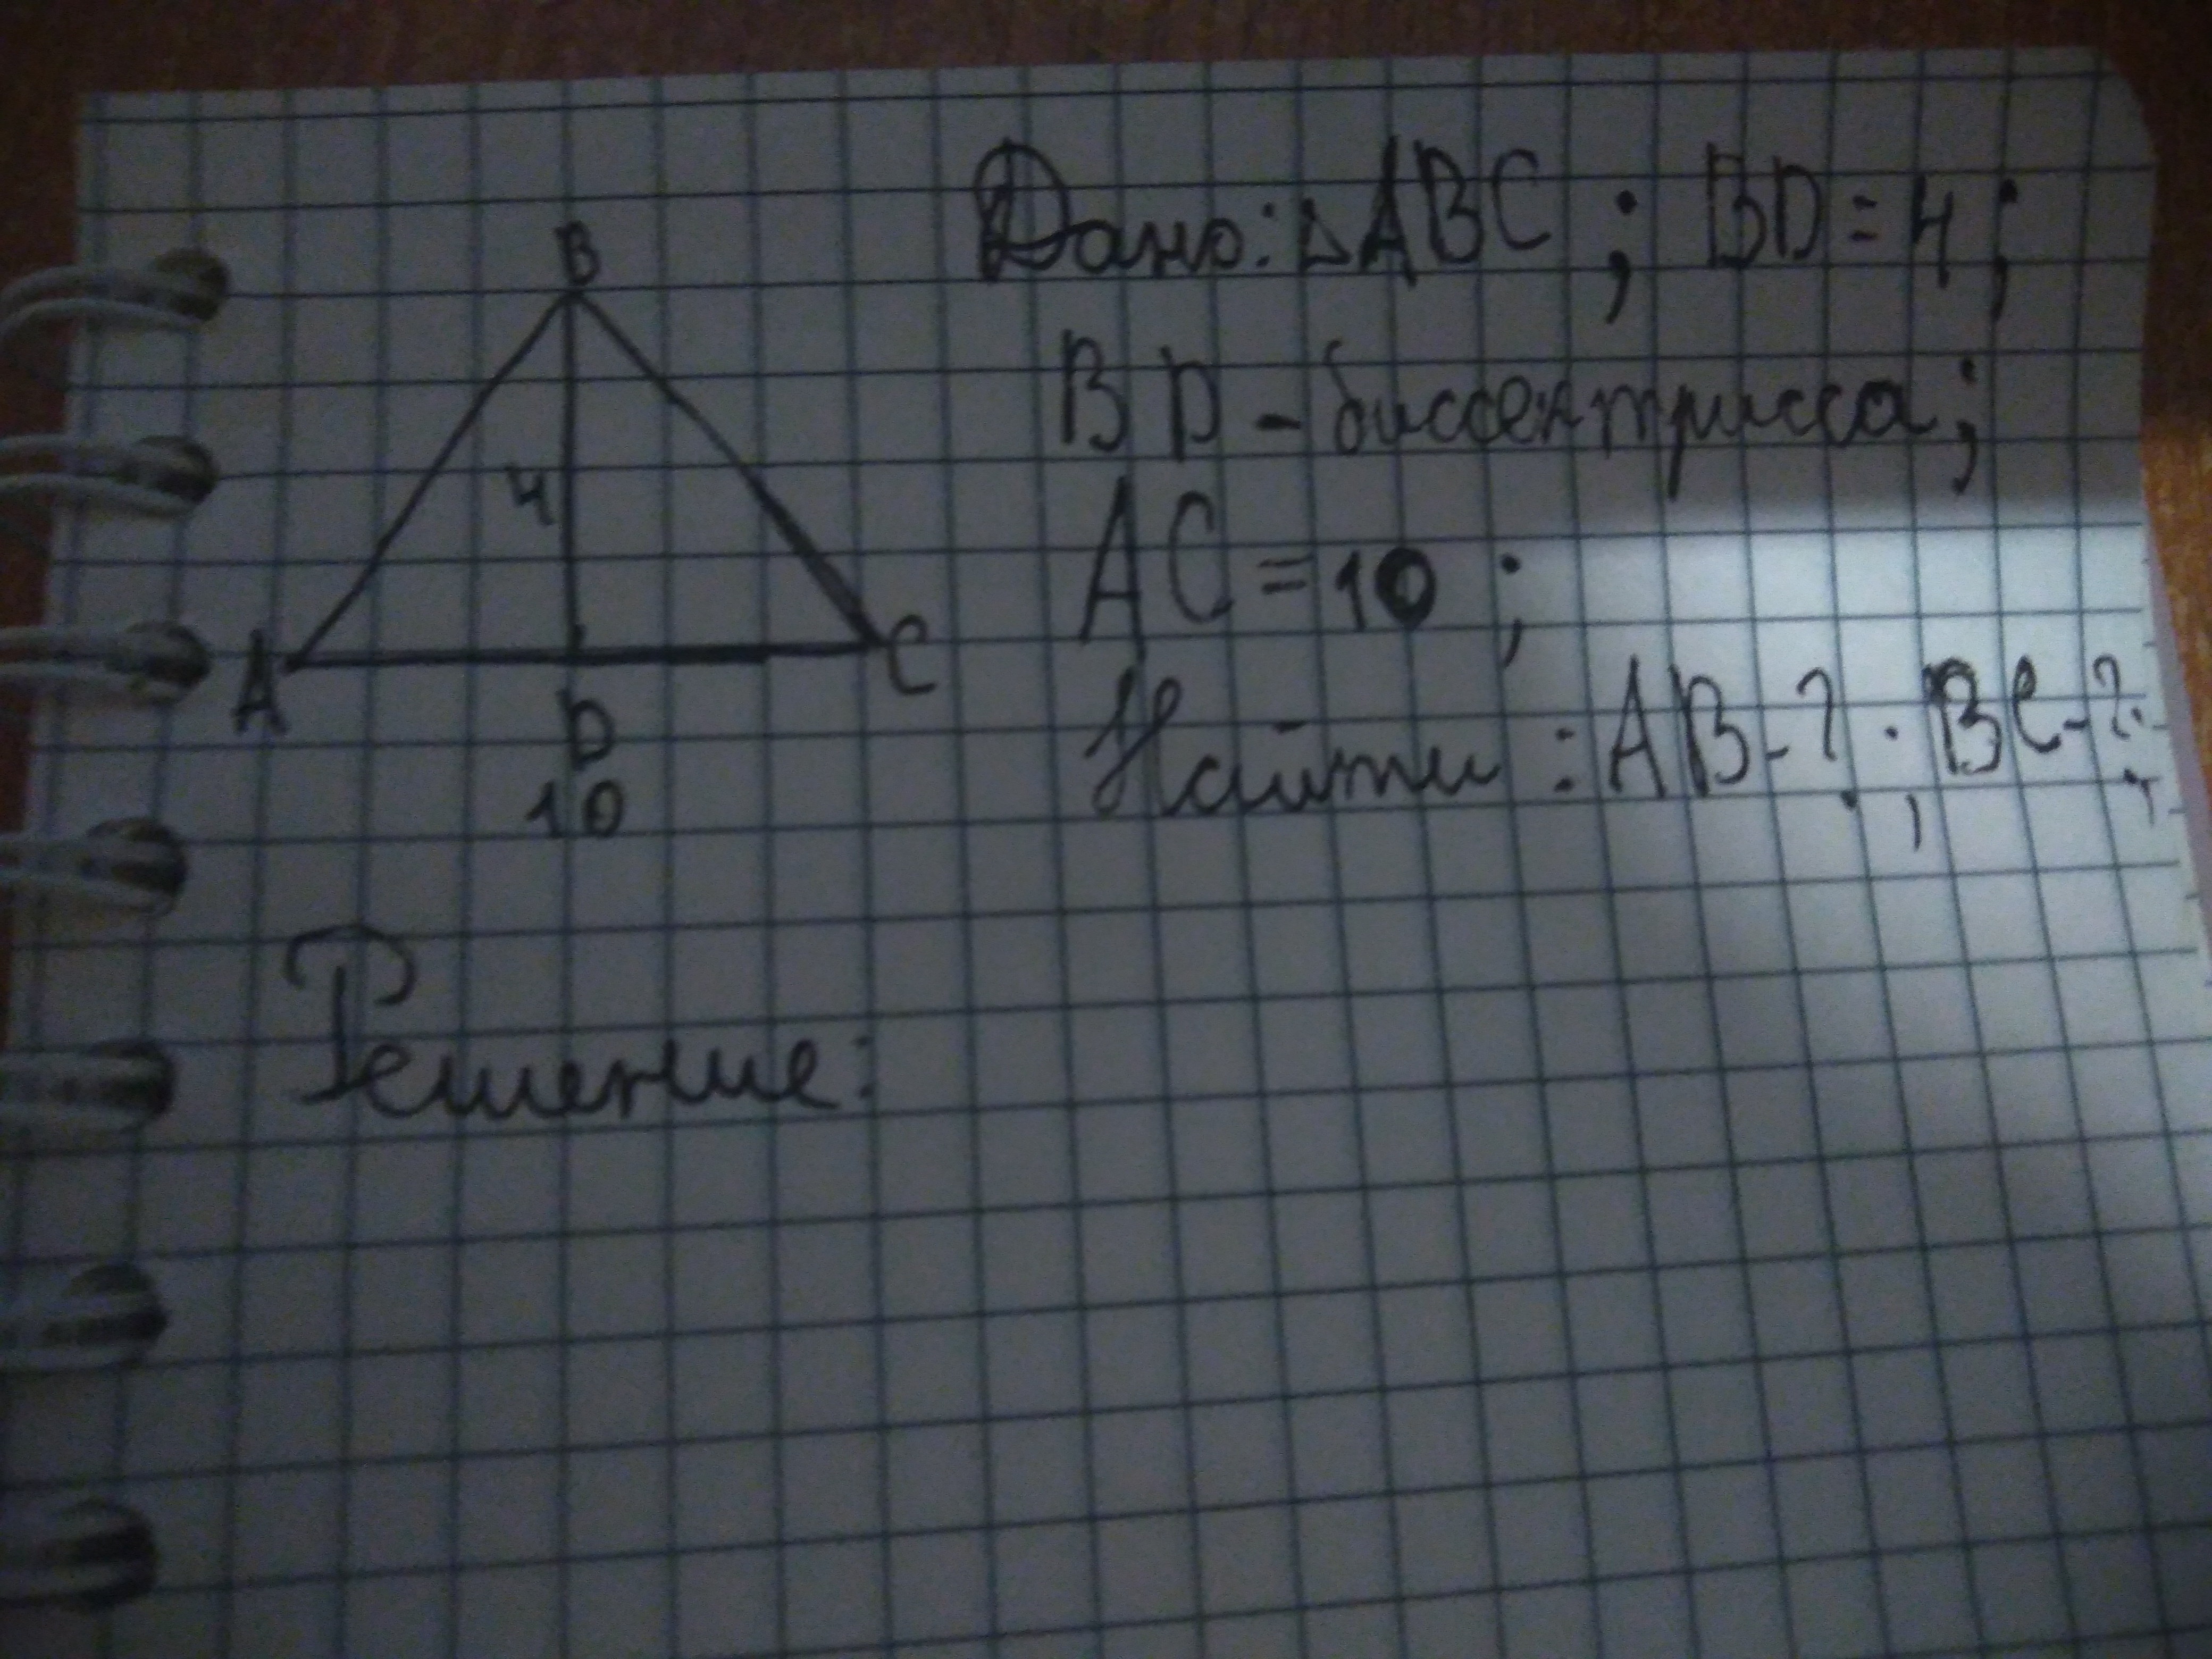 Дано: △ABC ; BD = 4 ;
BD - биссектрисса ;
AC = 10 ;
Найти : AB - ? ; BC - ? ;
B
4
A
C
D
10
Решение: